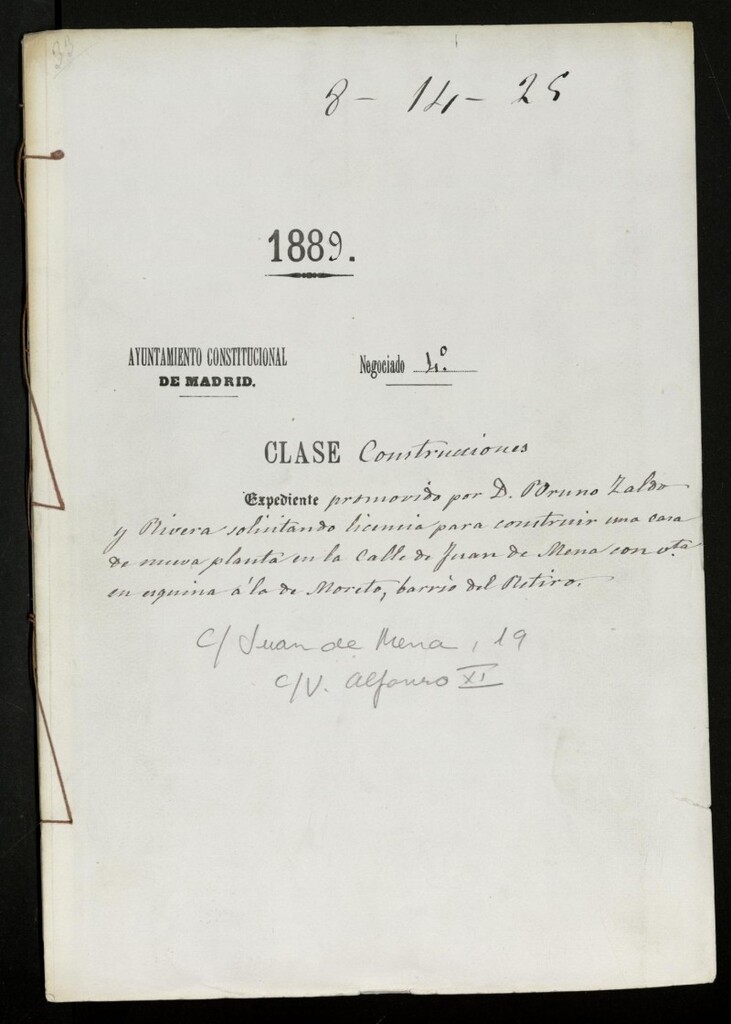 33
8 - 14 - 25
1889.
AYUNTAMIENTO CONSTITUCIONAL
DE MADRID.
Negociado 4.º
CLASE Construcciones
Expediente promovido por D. Bruno Zaldo
y Rivera solicitando licencia para construir una casa
de nueva planta en la Calle de Juan de Mena con v.ta
en esquina á la de Moreto, barrio del Retiro.
C/ Juan de Mena, 19
C/V. Alfonso XI